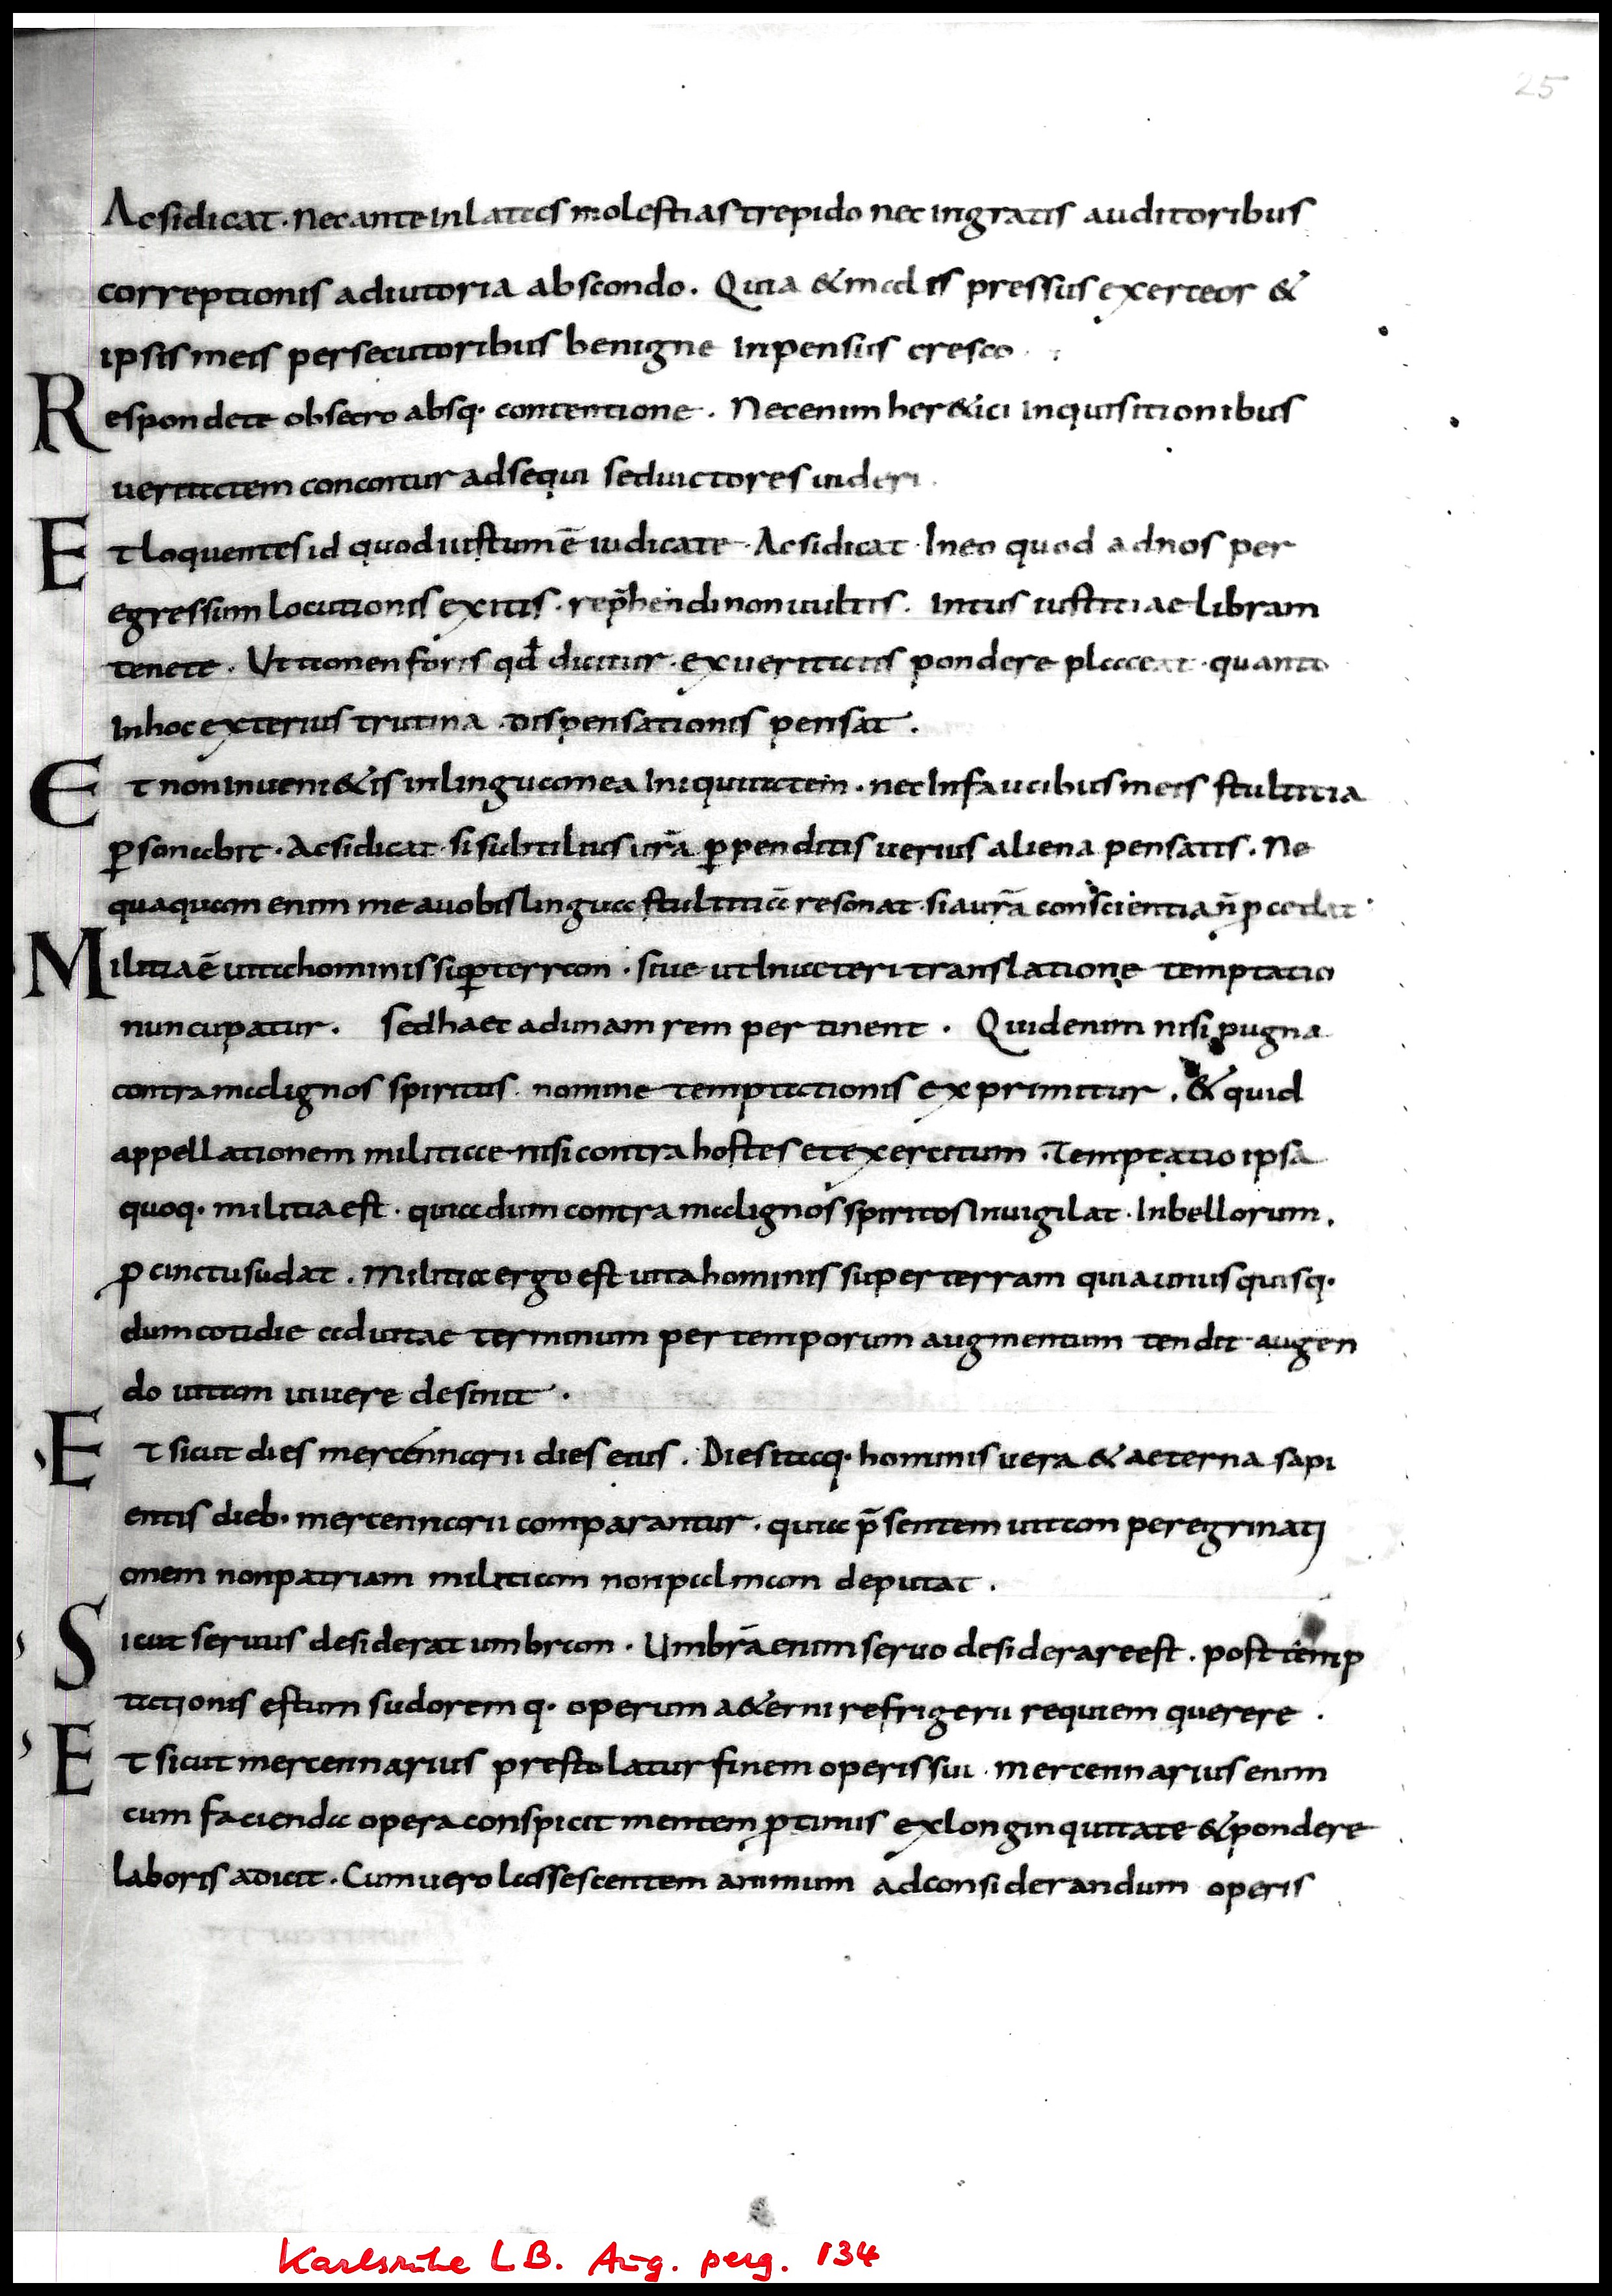 25
Acsidicat · Nec ante inlatas molestias trepido nec ingratis auditoribus
correptionis adiutoria abscondo . Quia & malis pressus exerceor &
ipsis meis persecutoribus benigne inpensius cresco .
Respondete obsecro absq· contentione . Nec enim her&ici inquisitionibus
ueritatem conantur adsequi sed uictores uideri .
Et loquentes id quod iustum ē iudicate · Acsidicat · In eo quod ad nos per
egressum locutionis exitis · rep̄hendi non uultis . Intus iustitiae libram
tenete . Ut tionen foris qđ dicitur · ex ueritatis pondere placeat · quanto
In hoc exterius trutina dispensationis pensat .
Et non inueni&is in lingua mea iniquitatem · nec in faucibus meis stultitia
ꝑsonabit · Acsidicat · si subtilius ur̄a ꝑpenditis uerius aliena pensatis . Ne
quaquam enim me a uobis lingua stultitiā resonat · si a ur̄a conscientia n̄ ꝓcedat ·
Militia ē uita hominis suꝑ terram · siue ut In ueteri translatione temptatio
nuncupatur . Sed haec ad unam rem pertinent . Quid enim nisi pugna
contra malignos spiritus nomine temptationis exprimitur . & quid
appellationem militiae nisi contra hostes et exercitum · Temptatio ipsa
quoq· militia est · quia dum contra malignos spiritos Inuigilat · In bellorum .
ꝓcinctu sudat . Militia ergo est uita hominis super terram quia unusquisq·
dum cotidie ad uitae terminum per temporum augmentum tendit augen
do uitam uiuere desinit .
Et sicut dies mercennarii dies eius . Dies itaq· hominis uera & aeterna sapi
entis dieb· mercennarii comparantur · quia p̄sentem uitam peregrinati
onem non patriam militiam non palmam deputat .
Sicut seruus desiderat umbram . Umbrā enim seruo desiderare est . post temp
tationis estum sudoremq· operum a&erni refrigerii requiem querere .
Et sicut mercennarius prestolatur finem operis sui · mercennarius enim
cum facienda opera conspicit mentem ꝓtinus ex longinquitate & pondere
laboris adicit . Cum uero lassescentem animum ad considerandum operis
Karlsruhe LB. Aug. perg. 134